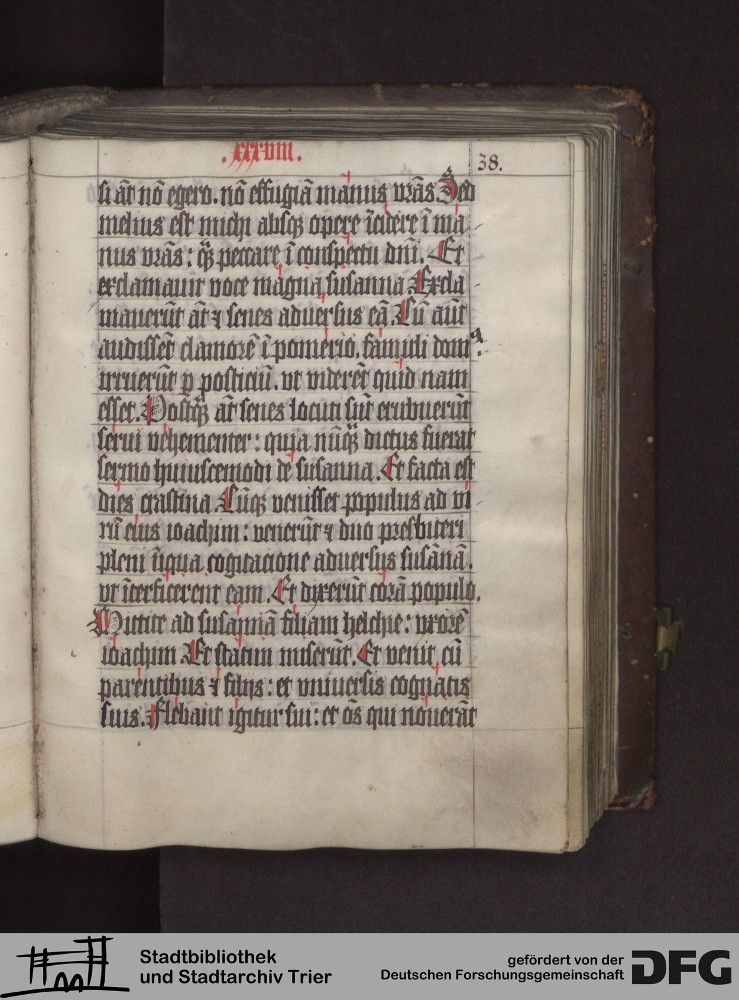 .xxxviii.
38.
si āt nō egero. nō effugiā manus vr̄as. Sed
melius est michi absqꝫ opere īcidere ī ma
nus vr̄as: q̄ꝫ peccare ī conspectu dnī. Et
exclamauit voce magna susanna. Excla
mauerūt āt ⁊ senes aduersus eā. Cū aūt
audissēt clamorē ī pomerio. famuli domꝰ.
irruerūt p posticiū. vt viderēt quid nam
esset. Postq̄ꝫ āt senes locuti sūt erubuerūt
serui vehementer: quia nūq̄ꝫ dictus fuerat
sermo huiuscemodi de susanna. Et facta est
dies crastina. Cūqꝫ venisset populus ad vi
rū eius ioachim: venerūt ⁊ duo presbiteri
pleni īiqua cogitacione aduersus susannā.
vt īterficerent eam. Et dixerūt corā populo.
Mittite ad susannā filiam helchie: vxorē
ioachim. Et statim miserūt. Et venit cū
parentibus ⁊ filijs: et vniuersis cognatis
suis. Flebant igitur sui: et oēs qui nouerāt
Stadtbibliothek
und Stadtarchiv Trier
gefördert von der
Deutschen Forschungsgemeinschaft
DFG